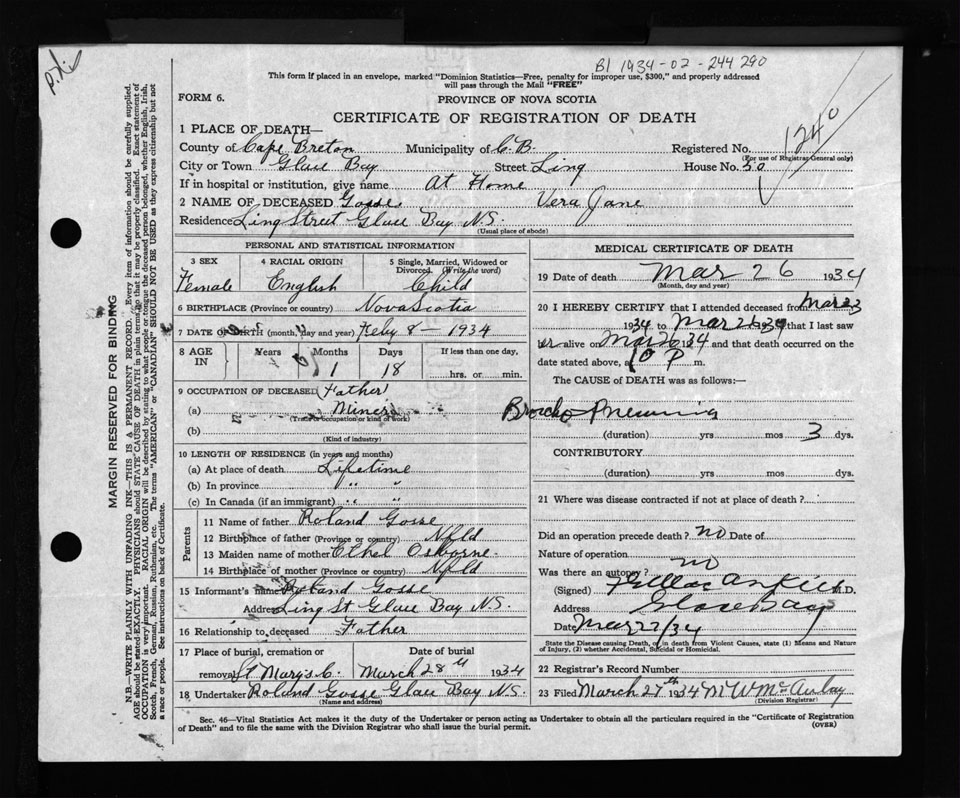 B1 1934-02-244 290
This form if placed in an envelope, marked "Dominion Statistics—Free, penalty for improper use, $300," and properly addressed
will pass through the Mail "FREE"
FORM 6.
PROVINCE OF NOVA SCOTIA
CERTIFICATE OF REGISTRATION OF DEATH
1240
MARGIN RESERVED FOR BINDING
N.B.—WRITE PLAINLY WITH UNFADING INK—THIS IS A PERMANENT RECORD. Every item of information should be carefully supplied.
AGE should be stated EXACTLY. PHYSICIANS should STATE CAUSE OF DEATH in plain terms so that it may be properly classified. Exact statement of
OCCUPATION is very important. RACIAL ORIGIN will be described by stating to what people or tongue the deceased person belonged, whether English, Irish,
Scotch, French, German, Russian, Ruthenian, etc. The terms "AMERICAN" or "CANADIAN" SHOULD NOT BE USED as they express citizenship but not
a race or people. See instructions on back of Certificate.
1 PLACE OF DEATH—
County of Cape Breton Municipality of C.B. Registered No.
(For use of Registrar General only)
City or Town Glace Bay Street Ling House No. 50
If in hospital or institution, give name At Home
2 NAME OF DECEASED Gosse Vera Jane
Residence Ling Street Glace Bay N.S.
(Usual place of abode)
PERSONAL AND STATISTICAL INFORMATION
3 SEX 4 RACIAL ORIGIN 5 Single, Married, Widowed or
Divorced (Write the word)
Female English Child
6 BIRTHPLACE (Province or country) Nova Scotia
7 DATE OF BIRTH (month, day and year) Feby 8 - 1934
8 AGE IN Years Months Days If less than one day.
1 18 hrs. or min.
9 OCCUPATION OF DECEASED Father
(a) Miner
(Trade or occupation or kind of work)
(b)
(Kind of industry)
10 LENGTH OF RESIDENCE (in years and months)
(a) At place of death Lifetime
(b) In province " "
(c) In Canada (if an immigrant) " "
Parents
11 Name of father Roland Gosse
12 Birthplace of father (Province or country) Nfld
13 Maiden name of mother Ethel Osborne
14 Birthplace of mother (Province or country) Nfld
15 Informant's name Roland Gosse
Address Ling St Glace Bay N.S.
16 Relationship to deceased Father
17 Place of burial, cremation or Date of burial
removal St Mary's C. March 28th 1934
18 Undertaker Roland Gosse Glace Bay N.S.
(Name and address)
MEDICAL CERTIFICATE OF DEATH
19 Date of death Mar 26 1934
(Month, day and year)
20 I HEREBY CERTIFY that I attended deceased from Mar 23
1934 to Mar 26 1934 that I last saw
er alive on Mar 26 1934 and that death occurred on the
date stated above, at 10 P m.
The CAUSE of DEATH was as follows:
Broncho Pneumonia
(duration) yrs mos 3 dys.
CONTRIBUTORY
(duration) yrs mos dys.
21 Where was disease contracted if not at place of death?
Did an operation precede death? no Date of
Nature of operation
Was there an autopsy? no
(Signed) M.D.
Address Glace Bay
Date Mar 27/34
State the Disease causing Death, or in death from Violent Causes, state (1) Means and Nature
of Injury, (2) whether Accidental, Suicidal or Homicidal.
22 Registrar's Record Number
23 Filed March 27th 1934
(Division Registrar)
Sec. 46—Vital Statistics Act makes it the duty of the Undertaker or person acting as Undertaker to obtain all the particulars required in the "Certificate of Registration
of Death" and to file the same with the Division Registrar who shall issue the burial permit.
(OVER)